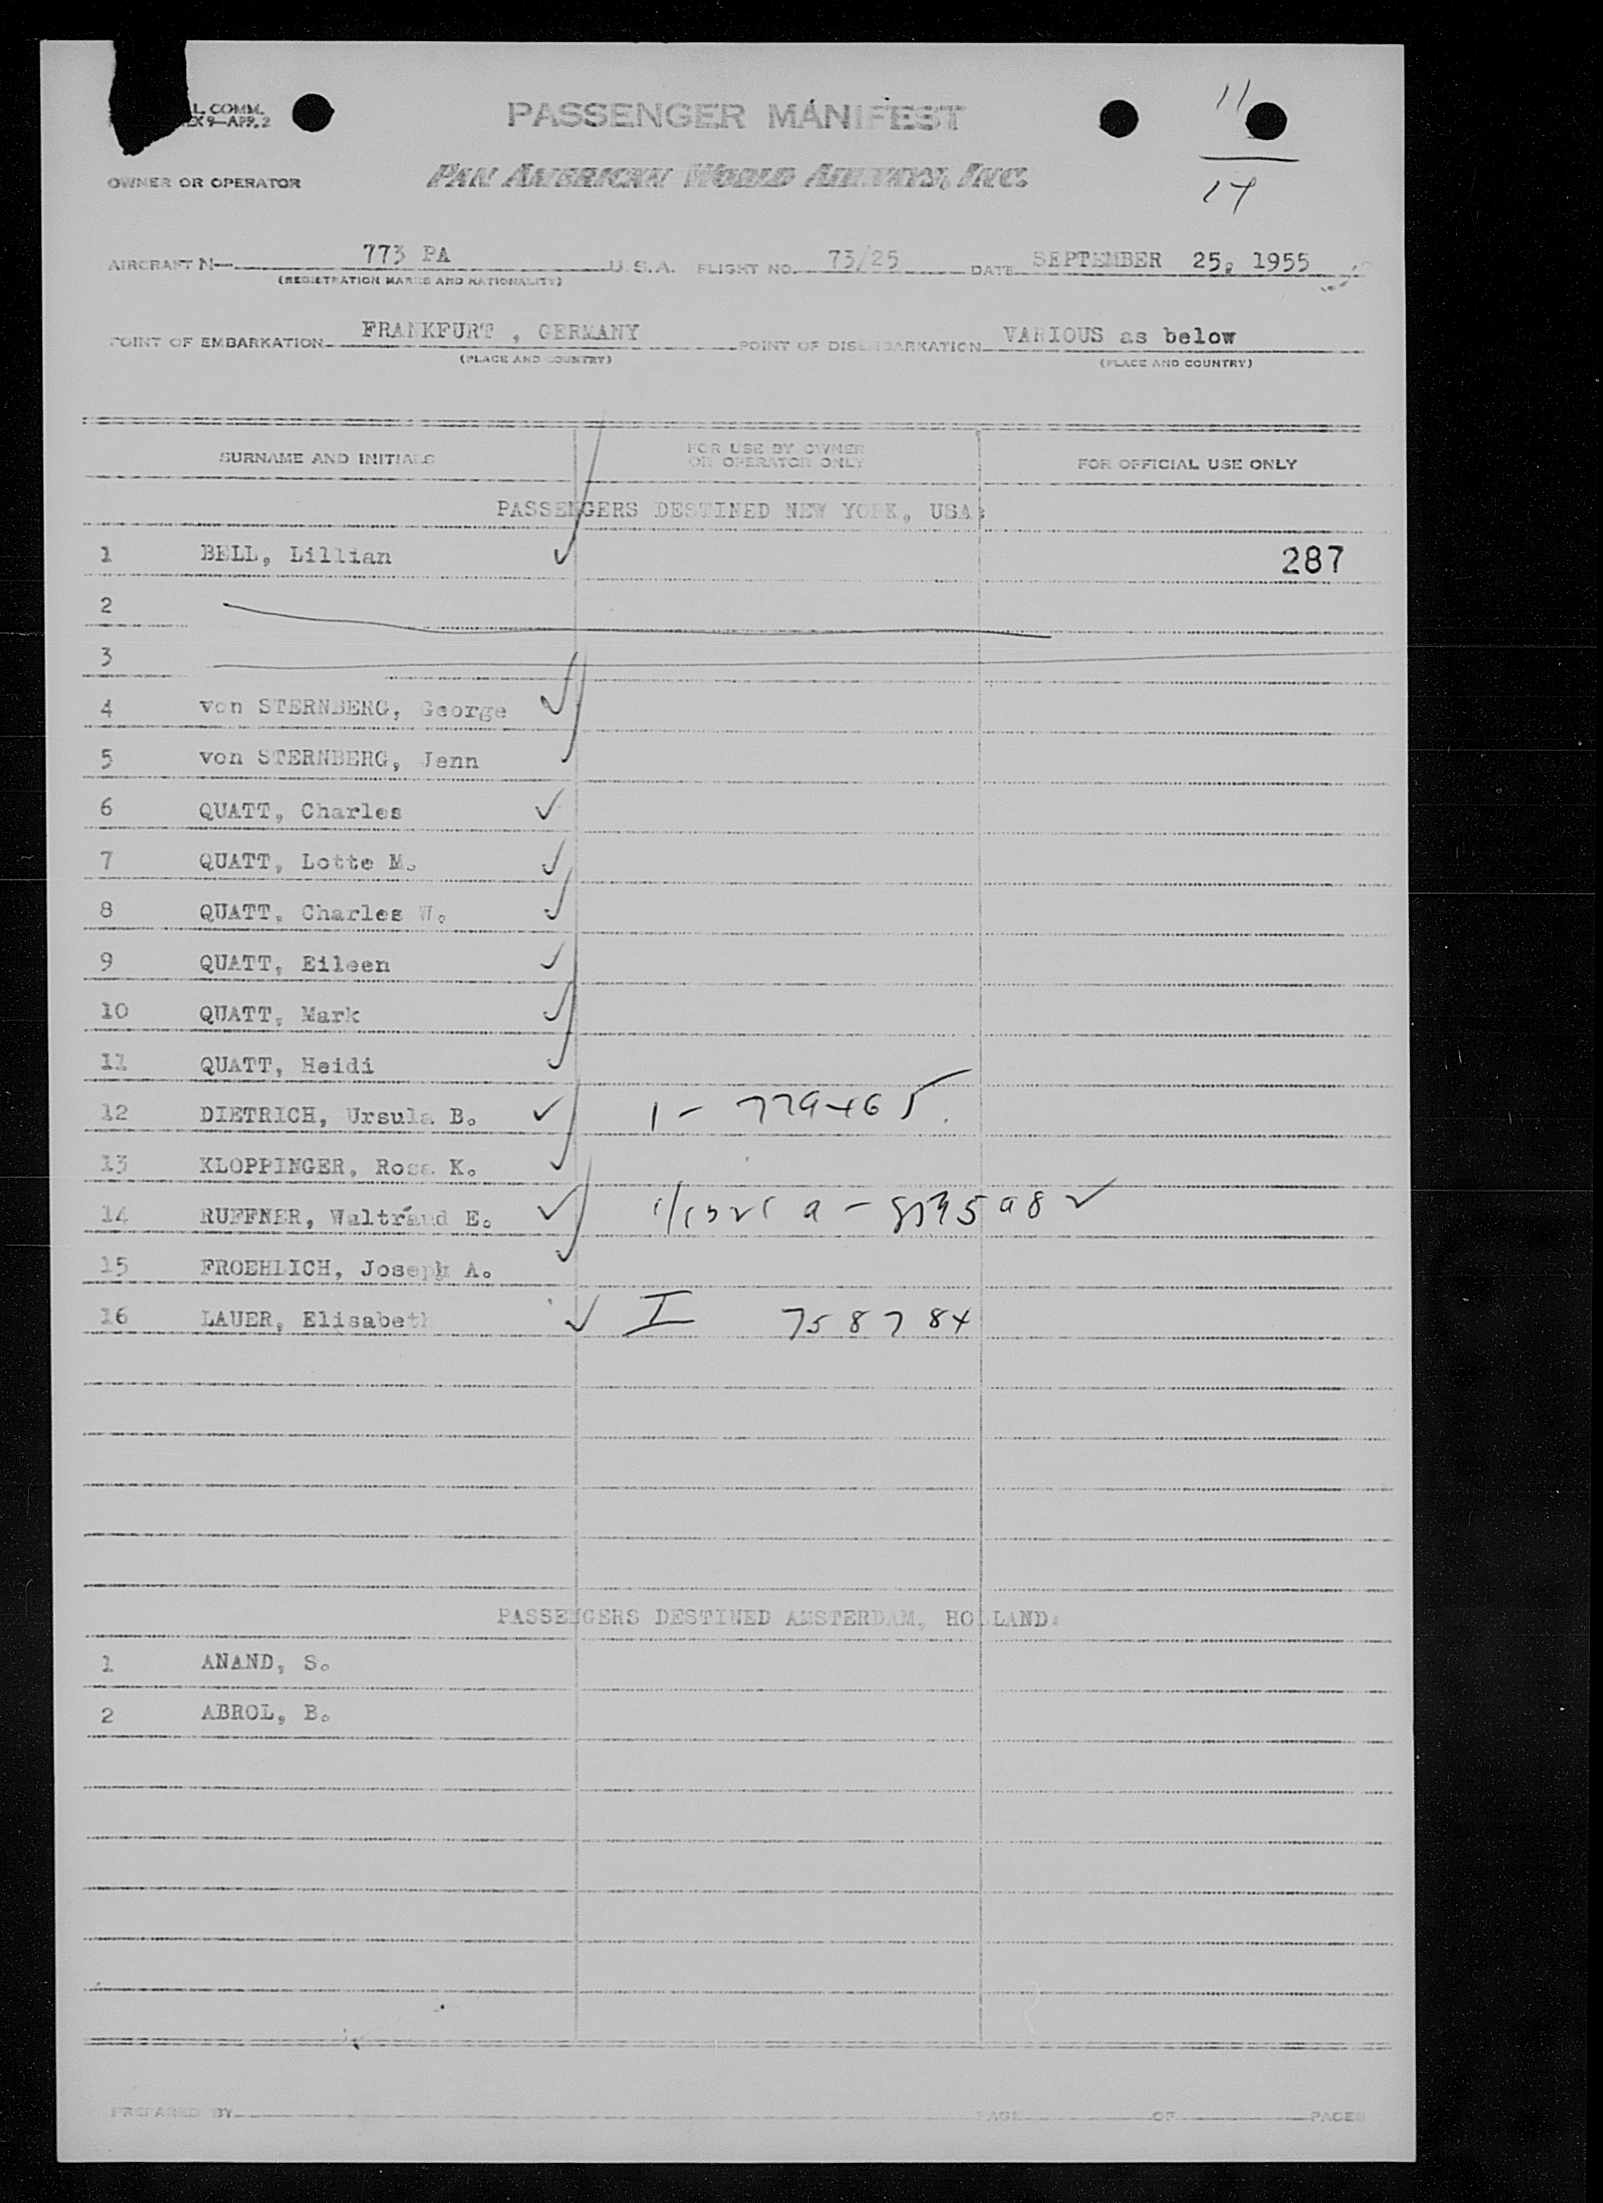 L. COMM.
EX 9—APP. 2
PASSENGER MANIFEST
11
14
OWNER OR OPERATOR
PAN AMERICAN WORLD AIRWAYS, INC.
AIRCRAFT N— 773 PA U.S.A. FLIGHT NO. 73/25 DATE SEPTEMBER 25, 1955
(REGISTRATION MARKS AND NATIONALITY)
POINT OF EMBARKATION FRANKFURT , GERMANY POINT OF DISEMBARKATION VARIOUS as below
(PLACE AND COUNTRY) (PLACE AND COUNTRY)
SURNAME AND INITIALS FOR USE BY OWNER OR OPERATOR ONLY FOR OFFICIAL USE ONLY
PASSENGERS DESTINED NEW YORK, USA:
1 BELL, Lillian 287
2
3
4 von STERNBERG, George
5 von STERNBERG, Jenn
6 QUATT, Charles
7 QUATT, Lotte M.
8 QUATT, Charles W.
9 QUATT, Eileen
10 QUATT, Mark
11 QUATT, Heidi
12 DIETRICH, Ursula B. 1 - 779465
13 KLOPPINGER, Rosa K.
14 RUFFNER, Waltraud E.
15 FROEHLICH, Joseph A.
16 LAUER, Elisabeth I 758784
PASSENGERS DESTINED AMSTERDAM, HOLLAND:
1 ANAND, S.
2 ABROL, B.
PREPARED BY PAGE OF PAGES